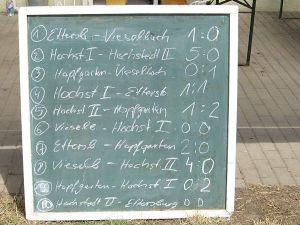 ① Ettersb. - Vieselbach 1:0
② Hochst I - Hochstedt II 5:0
③ Hopfgarten - Vieselbach 0:1
④ Hochst I - Ettersb 1:1
⑤ Hochst II - Hopfgarten 1:2
⑥ Vieselb - Hochst I 0:0
⑦ Ettersb - Hopfgarten 2:0
⑧ Vieselb - Hochst II 4:0
⑨ Hopfgarten - Hochst I 0:2
⑩ Hochstedt II - Ettersburg 0:0